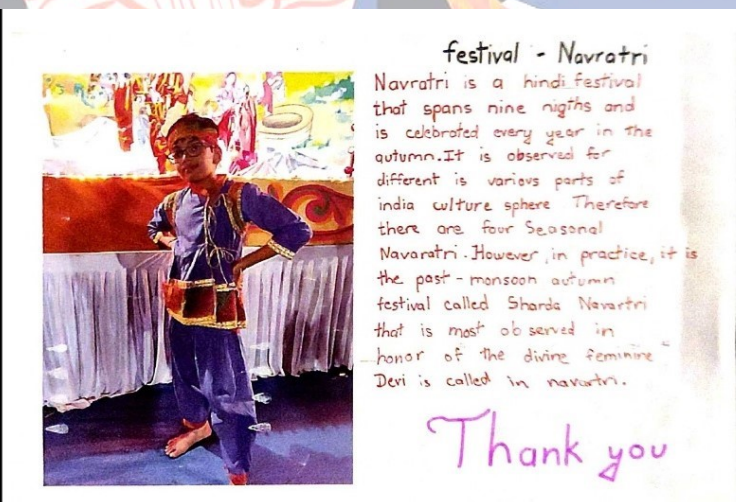 festival - Navratri
Navratri is a hindi festival
that spans nine nigths and
is celebrated every year in the
autumn. It is observed for
different is various parts of
india culture sphere Therefore
there are four Seasonal
Navaratri. However, in practice, it is
the past - monsoon autumn
festival called Sharda Navartri
that is most ob served in
honor of the divine feminine
Devi is called in navartri.
Thank you